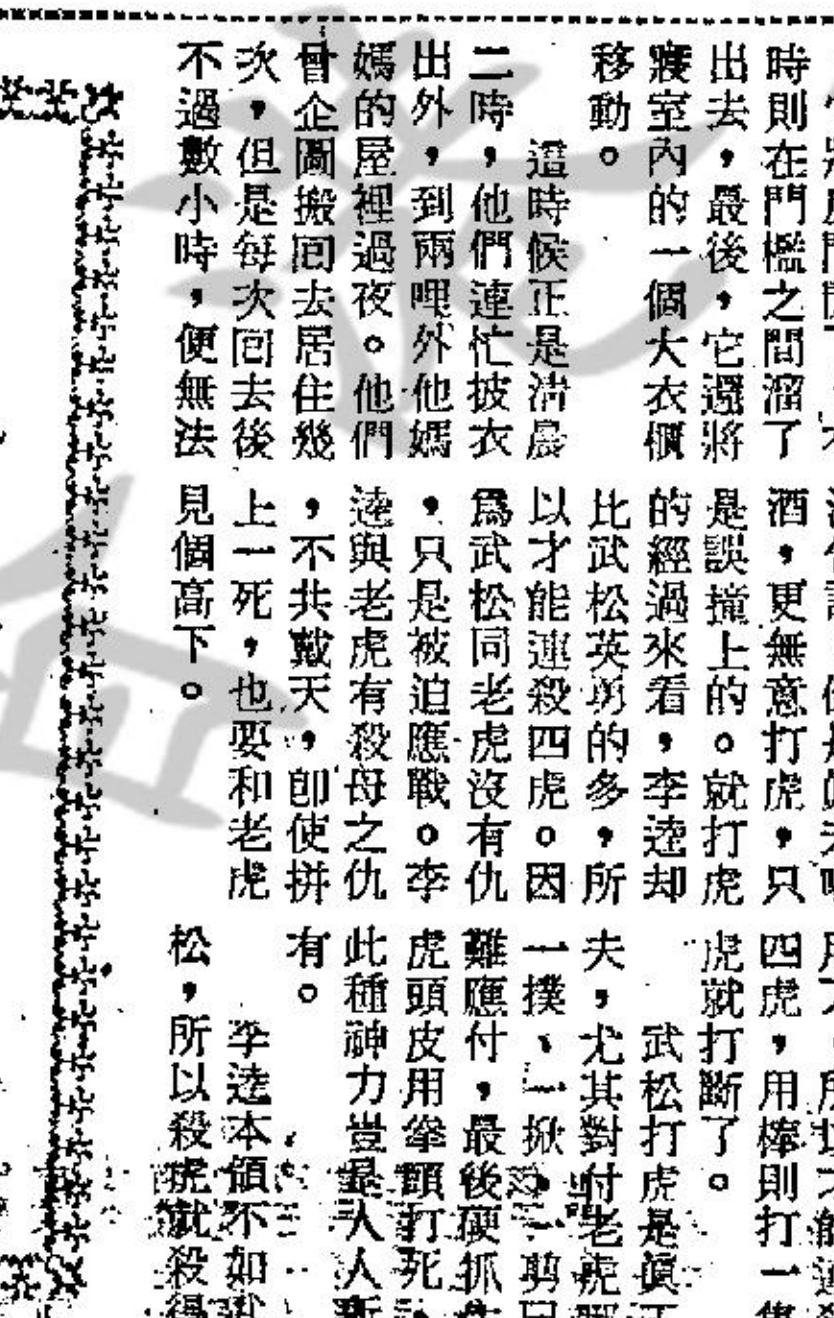 時則在門檻之間溜了
出去，最後，它還將
寢室內的一個大衣櫃
移動。
這時候正是清晨
二時，他們連忙披衣
出外，到兩哩外他媽
媽的屋裡過夜。他們
曾企圖搬回去居住幾
次，但是每次回去後
不過數小時，便無法
酒，更無意打虎，只
是誤撞上的。就打虎
的經過來看，李逵却
比武松英勇的多，所
以才能連殺四虎。因
爲武松同老虎沒有仇
，只是被迫應戰。李
逵與老虎有殺母之仇
，不共戴天，卽使拼
上一死，也要和老虎
見個高下。
四虎，用棒則打一隻
虎就打斷了。
武松打虎是眞正
夫，尤其對付老虎
一撲、一掀、一剪
難應付，最後硬抓
虎頭皮用拳頭打死，
此種神力豈是人人所
有。
李逵本領不如武
松，所以殺虎就殺得